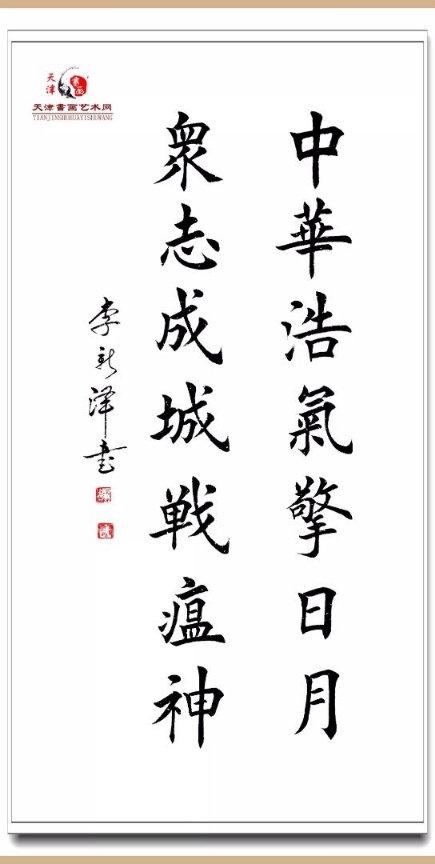 天津
書画
天津書画艺术网
TIANJINSHUHUAYISHUWANG
中華浩氣擎日月
衆志成城戦瘟神
李新泽书